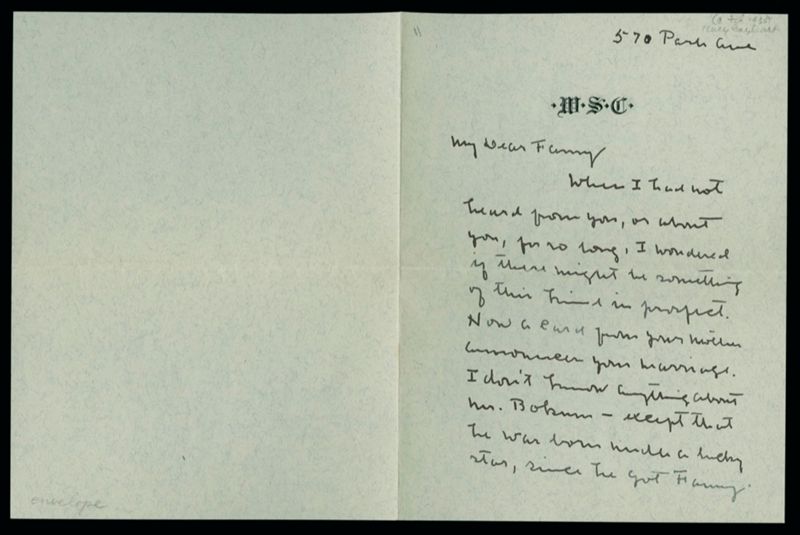 570 Park Ave
·W·S·C·
My Dear Fanny
When I had not
heard from you, or about
you, for so long, I wondered
if there might be something
of this kind in prospect.
Now a card from your mother
announces your marriage.
I don't know anything about
Mr. Bokum – except that
he was born under a lucky
star, since he got Fanny.
envelope